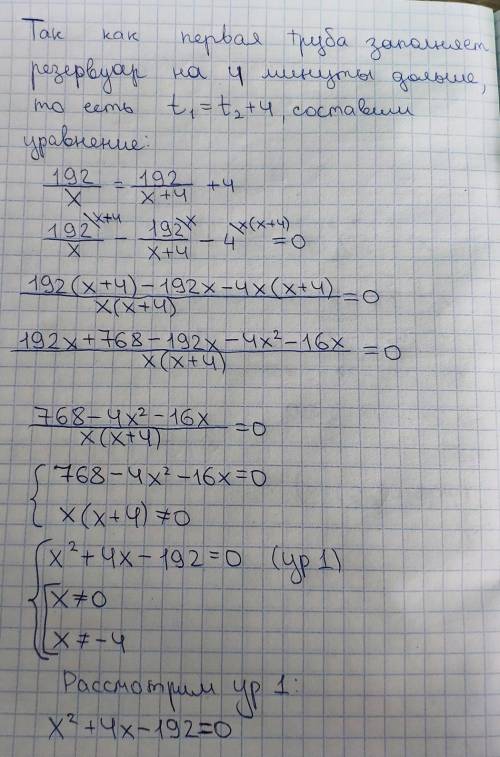 Так как первая труба заполняет
резервуар на 4 минуты дольше,
то есть t₁ = t₂ + 4, составим
уравнение:
192/x = 192/(x+4) + 4
192\x+4/x − 192\x/(x+4) − 4\x(x+4) = 0
(192(x+4) − 192x − 4x(x+4))/(x(x+4)) = 0
(192x + 768 − 192x − 4x² − 16x)/(x(x+4)) = 0
(768 − 4x² − 16x)/(x(x+4)) = 0
{ 768 − 4x² − 16x = 0
x(x+4) ≠ 0
{ x² + 4x − 192 = 0 (ур 1)
[ x ≠ 0
x ≠ −4
Рассмотрим ур 1:
x² + 4x − 192 = 0